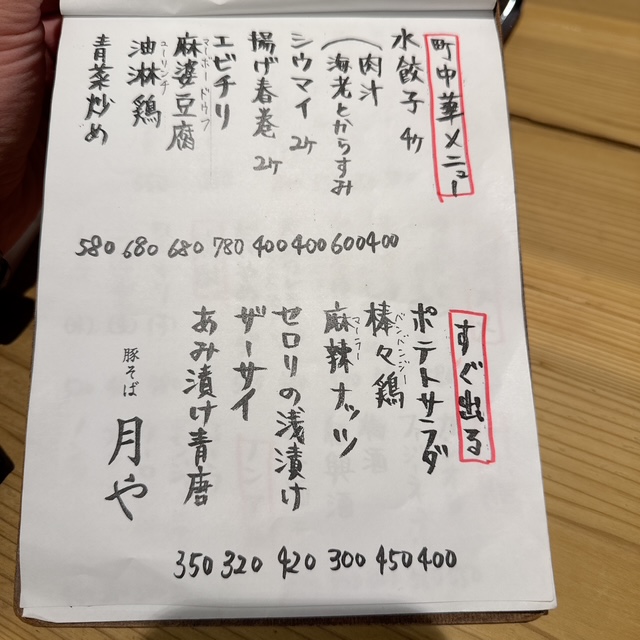 町中華メニュー
水餃子 4ヶ
(肉汁 400
海老とからすみ 600
シウマイ 2ヶ 400
揚げ春巻 2ヶ 400
エビチリ 780
マーボードウフ
麻婆豆腐 680
ユーリンチ
油淋鶏 680
青菜炒め 580
すぐ出る
ポテトサラダ 400
バンバンジー
棒々鶏 450
マーラー
麻辣ナッツ 300
セロリの浅漬け 420
ザーサイ 320
あみ漬け青磨 350
豚そば
月や